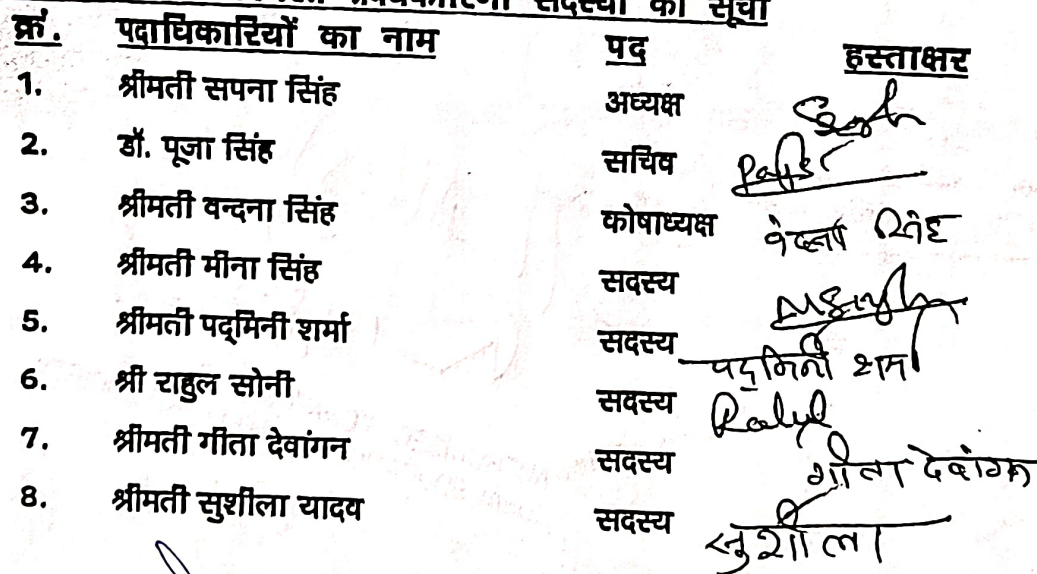 प्रबंधकारिणी सदस्यों की सूची
क्रं. पदाधिकारियों का नाम पद हस्ताक्षर
1. श्रीमती सपना सिंह अध्यक्ष Singh
2. डॉ. पूजा सिंह सचिव
3. श्रीमती वन्दना सिंह कोषाध्यक्ष वंदना सिंह
4. श्रीमती मीना सिंह सदस्य MSingh
5. श्रीमती पद्मिनी शर्मा सदस्य पद्मिनी शर्मा
6. श्री राहुल सोनी सदस्य Rahul
7. श्रीमती गीता देवांगन सदस्य गीता देवांगन
8. श्रीमती सुशीला यादव सदस्य सुशीला